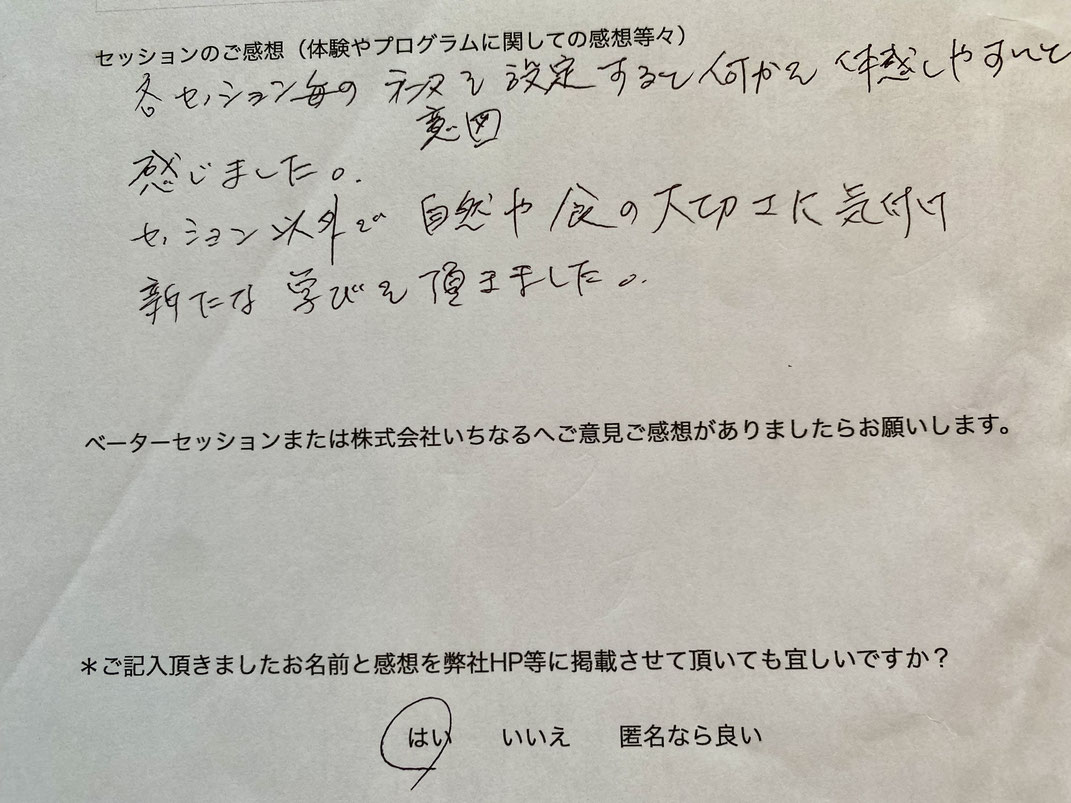 セッションのご感想（体験やプログラムに関しての感想等々）
各セッション毎の テーマを 設定すると何かを 体感しやすいと
意図
感じました。
セッション以外で 自然や食の大切さに気付け
新たな 学びを頂きました。
ベーターセッションまたは株式会社いちなるへご意見ご感想がありましたらお願いします。
＊ご記入頂きましたお名前と感想を弊社HP等に掲載させて頂いても宜しいですか？
はい いいえ 匿名なら良い